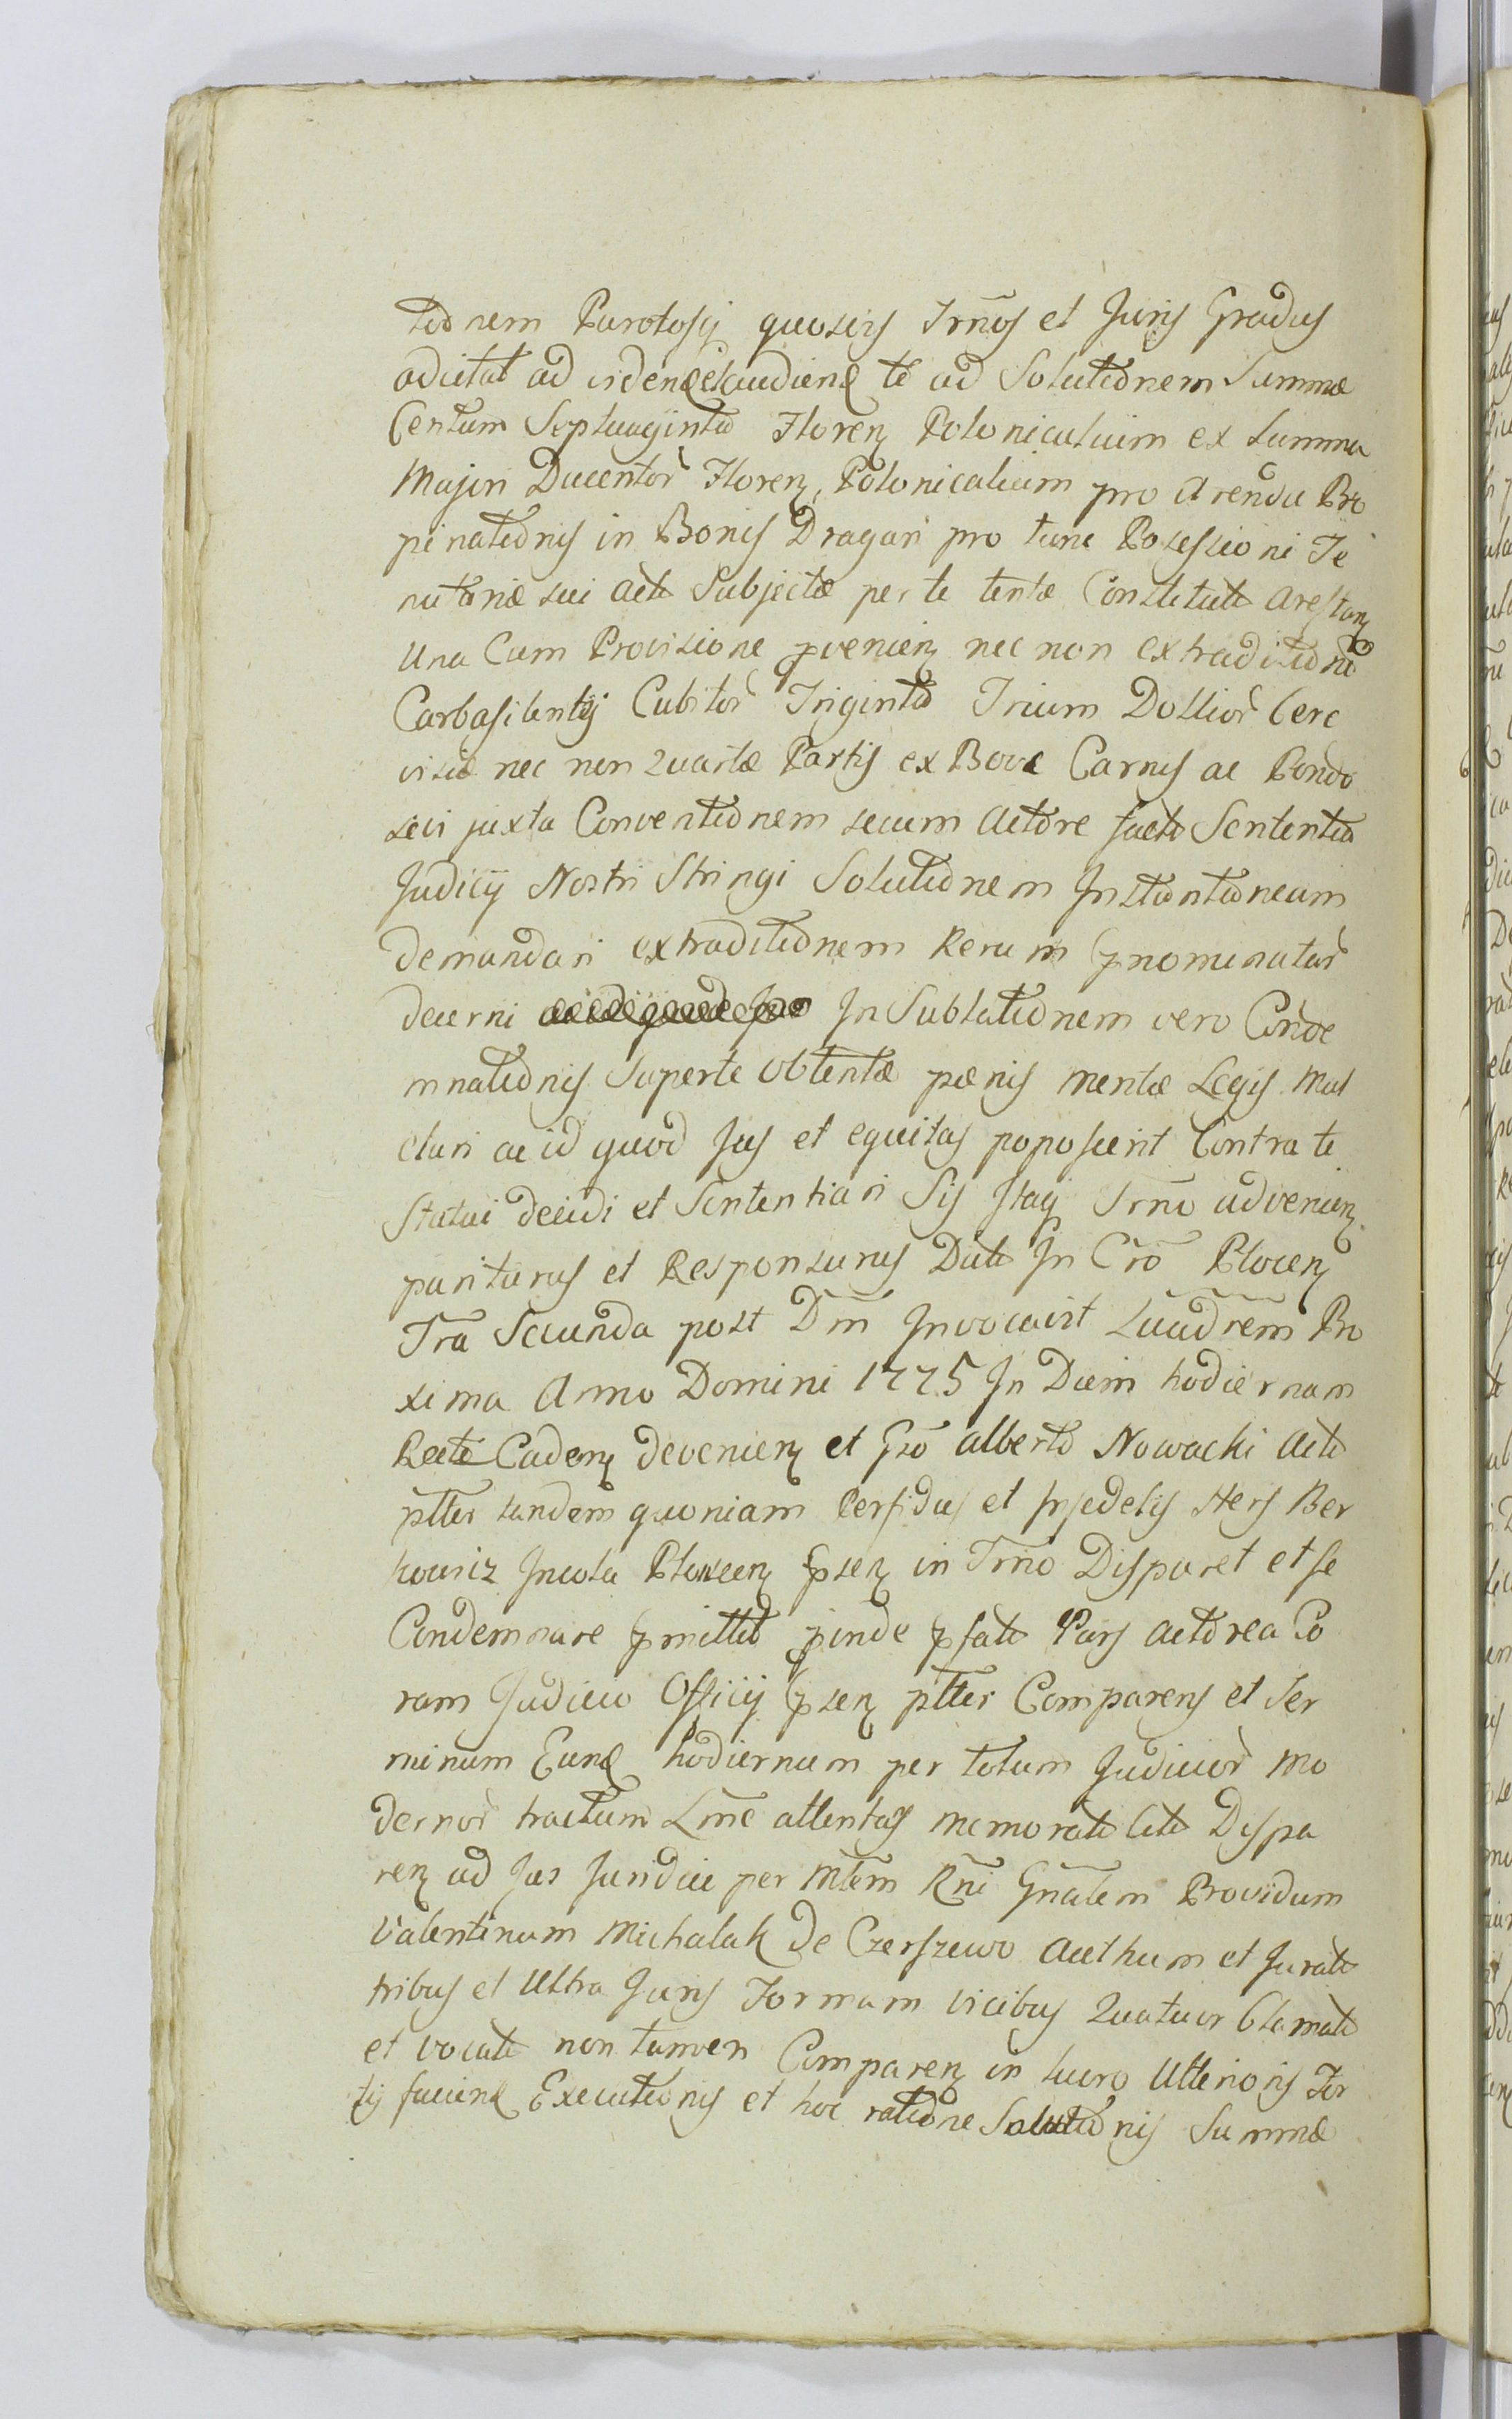 tionem Parotosij quosvis Trnos et Juris Gradus
adcitat ad vidend et audiend te ad Solutionem Summæ
Centum Septuaginta Floren Polonicalium ex Summa
Majori Ducentor Floren, Polonicalium pro Arenda Pro
pinationis in Bonis Dragan pro tunc Possessioni Te
nutoriæ sui Acto Subjectæ per te tentæ Constituto arestan
Una Cum Provisione pvenien nec non extraditione
Carbasi lentej Cubitor Triginta Trium Dollior Cere
visiæ nec non Quartæ Partis ex Bove Carnis ac Pondo
sevi juxta Conventionem secum Actore facto Sententia
Judicij Nostri Stringi Solutionem Instantaneam
demandari extraditionem Rerum pnominatar
decerni In Sublationem vero Conde
mnationis Super te obtentæ pænis mentæ Legis mul
ctari ac id quod Jus et equitas poposcerit Contra te
Statui decidi et Sententiari Sis Stag Trno advenien
pariturus et Responsurus Dato In Cro Plocen
Fra Secunda post Dm Invocavit Quadrem Pro
xima Anno Domini 1775 In Diem hodiernam
Recte Caden devenien et Gso Alberto Nowacki Acto
ptter tandem quoniam Perfidus et Infidelis Hers Ber
kowicz Incola Plocen psen in Trno Disparet et se
Condemnare pmittit pinde pfato Pars Actorea Co
ram Judicio Officij psen ptter Comparens et Ter
minum Eund hodiernum per totum Judicior Mo
dernor tractum Lme attentas memorato Cito Dispa
ren ad Jus Juridice per Mtem Rni Gnalem Providum
Valentinum Michalak de Czerszewo Aucthum et Jurato
tribus et Ultra Juris Formam vicibus Quatuor Clamato
et vocato non tamen Comparen in lucro Ulterioris For
tis faciend Executionis et hoc ratione Solutionis Summæ